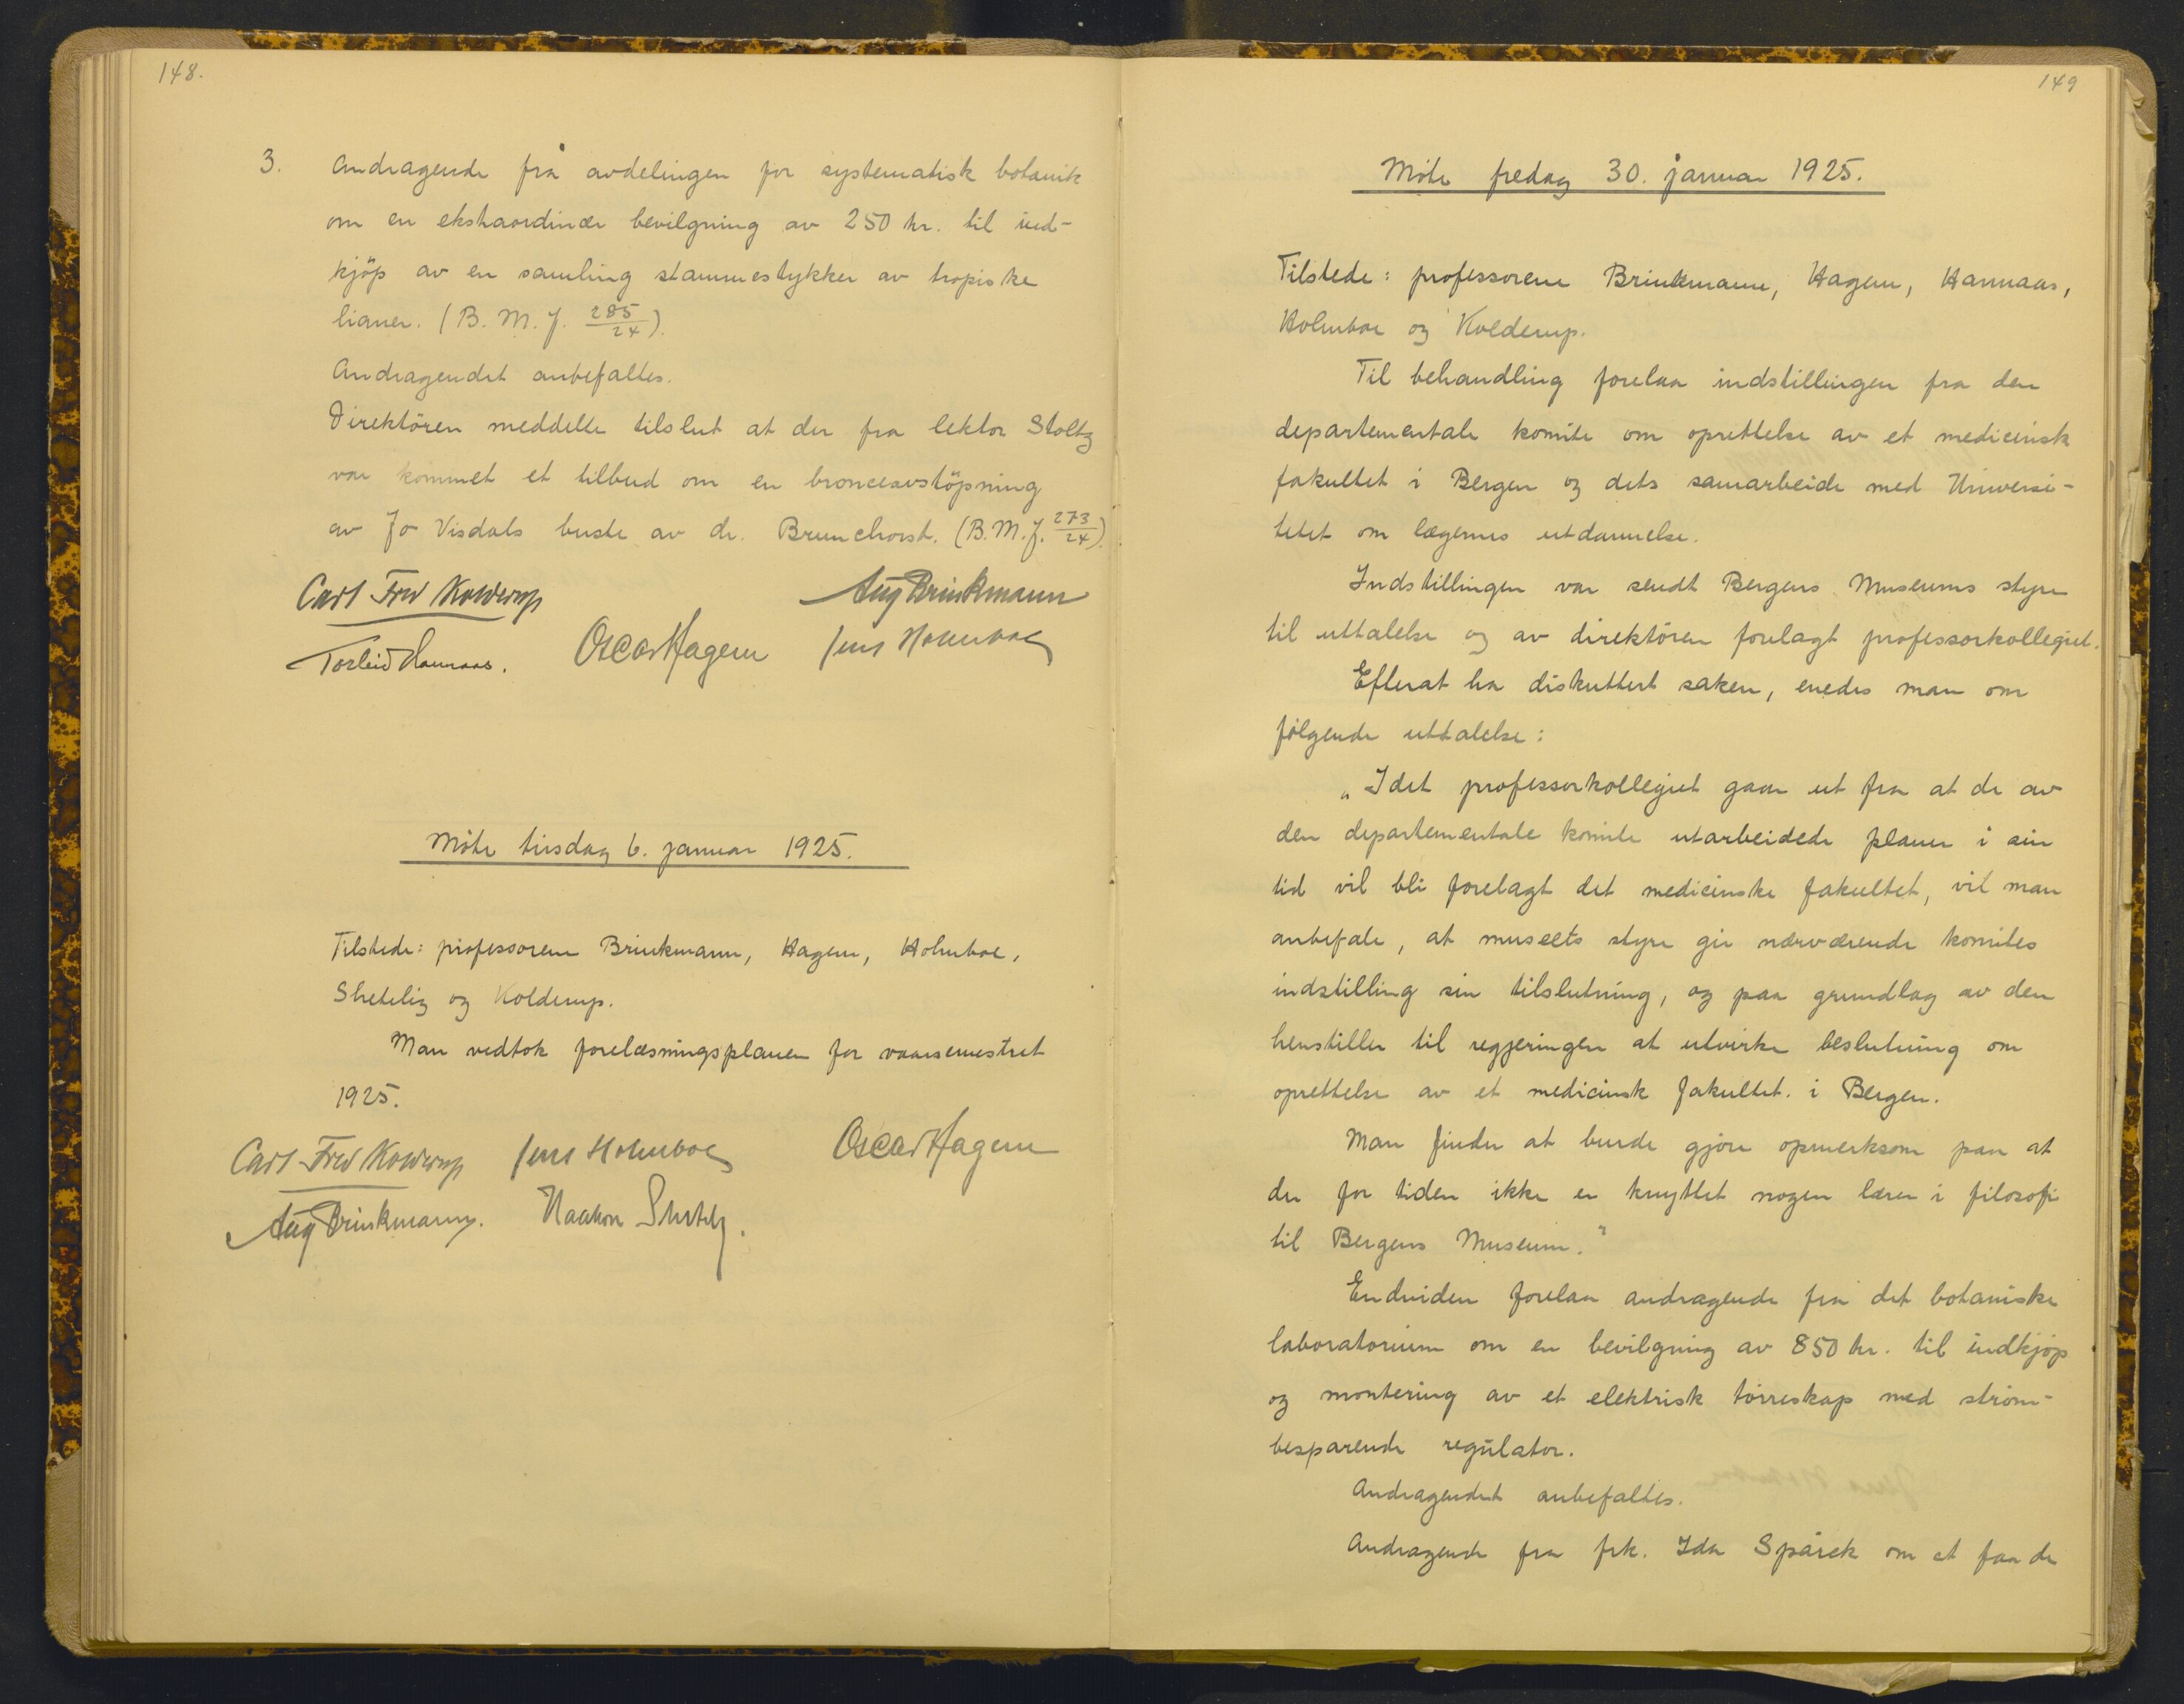 148.
3. Andragende frå avdelingen for systematisk botanik
om en ekstraordinær bevilgning av 250 kr. til ind-
kjöp av en samling stammestykker av tropiske
lianer. (B. M. J. 285/24).
Andragendet anbefaltes.
Direktören meddelte tilslut at der fra lektor Stoltz
var kommet et tilbud om en bronceavstöpning
av Jo Visdals buste av dr. Brunchorst. (B. M. J. 273/24)
Carl Fred Kolderup Aug Brinkmann
Torleiv Hannaas. Oscar Hagem Jens Holmboe
Möte tirsdag 6. januar 1925.
Tilstede: professorene Brinkmann, Hagem, Holmboe,
Shetelig og Kolderup.
Man vedtok forelæsningsplanen for vaarsemestret
1925.
Carl Fred Kolderup Jens Holmboe Oscar Hagem
Aug Brinkmann. Haakon Shetelig.
149
Möte fredag 30. januar 1925.
Tilstede: professorene Brinkmann, Hagem, Hannaas,
Holmboe og Kolderup.
Til behandling forelaa indstillingen fra den
departementale komite om oprettelse av et medicinsk
fakultet i Bergen og dets samarbeide med Universi-
tetet om lægernes utdannelse.
Indstillingen var sendt Bergens Museums styre
til uttalelse og av direktören forelagt professorkollegiet.
Efterat ha diskuttert saken, enedes man om
fölgende uttalelse:
„Idet professorkollegiet gaar ut fra at de av
den departementale komite utarbeidede planer i sin
tid vil bli forelagt det medicinske fakultet, vil man
anbefale, at museets styre gir nærværende komites
indstilling sin tilslutning, og paa grundlag av den
henstiller til regjeringen at utvirke beslutning om
oprettelse av et medicinsk fakultet. i Bergen.
Man finder at burde gjöre opmerksom paa at
der for tiden ikke er knyttet nogen lærer i filosofi
til Bergens Museum."
Endviden forelaa andragende fra det botaniske
laboratorium om en bevilgning av 850 kr. til indkjöp
og montering av et elektrisk törreskap med ström-
besparende regulator.
Andragendet anbefaltes.
Andragende fra frk. Ida Spärck om at faa de